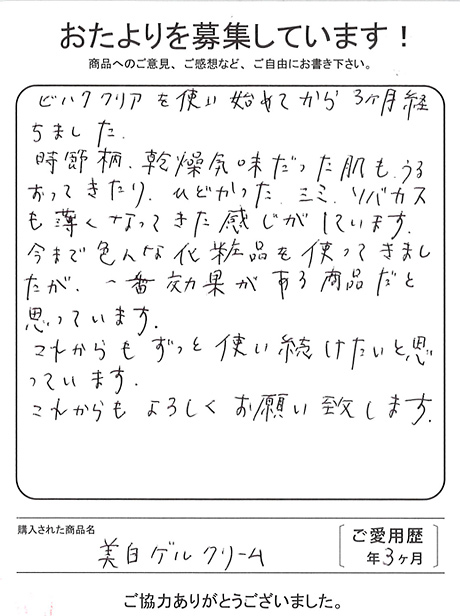 おたよりを募集しています！
商品へのご意見、ご感想など、ご自由にお書き下さい。
ビハククリアを使い始めてから3ヶ月経
ちました.
時節柄、乾燥気味だった肌も、うる
おってきたり、ひどかった、シミ、ソバカス
も薄くなってきた感じがしています.
今まで色んな化粧品を使ってきまし
たが、一番効果がある商品だと
思っています.
これからもずっと使い続けたいと思
っています.
これからもよろしくお願い致します.
購入された商品名
美白ゲルクリーム
ご愛用歴
年3ヶ月
ご協力ありがとうございました。